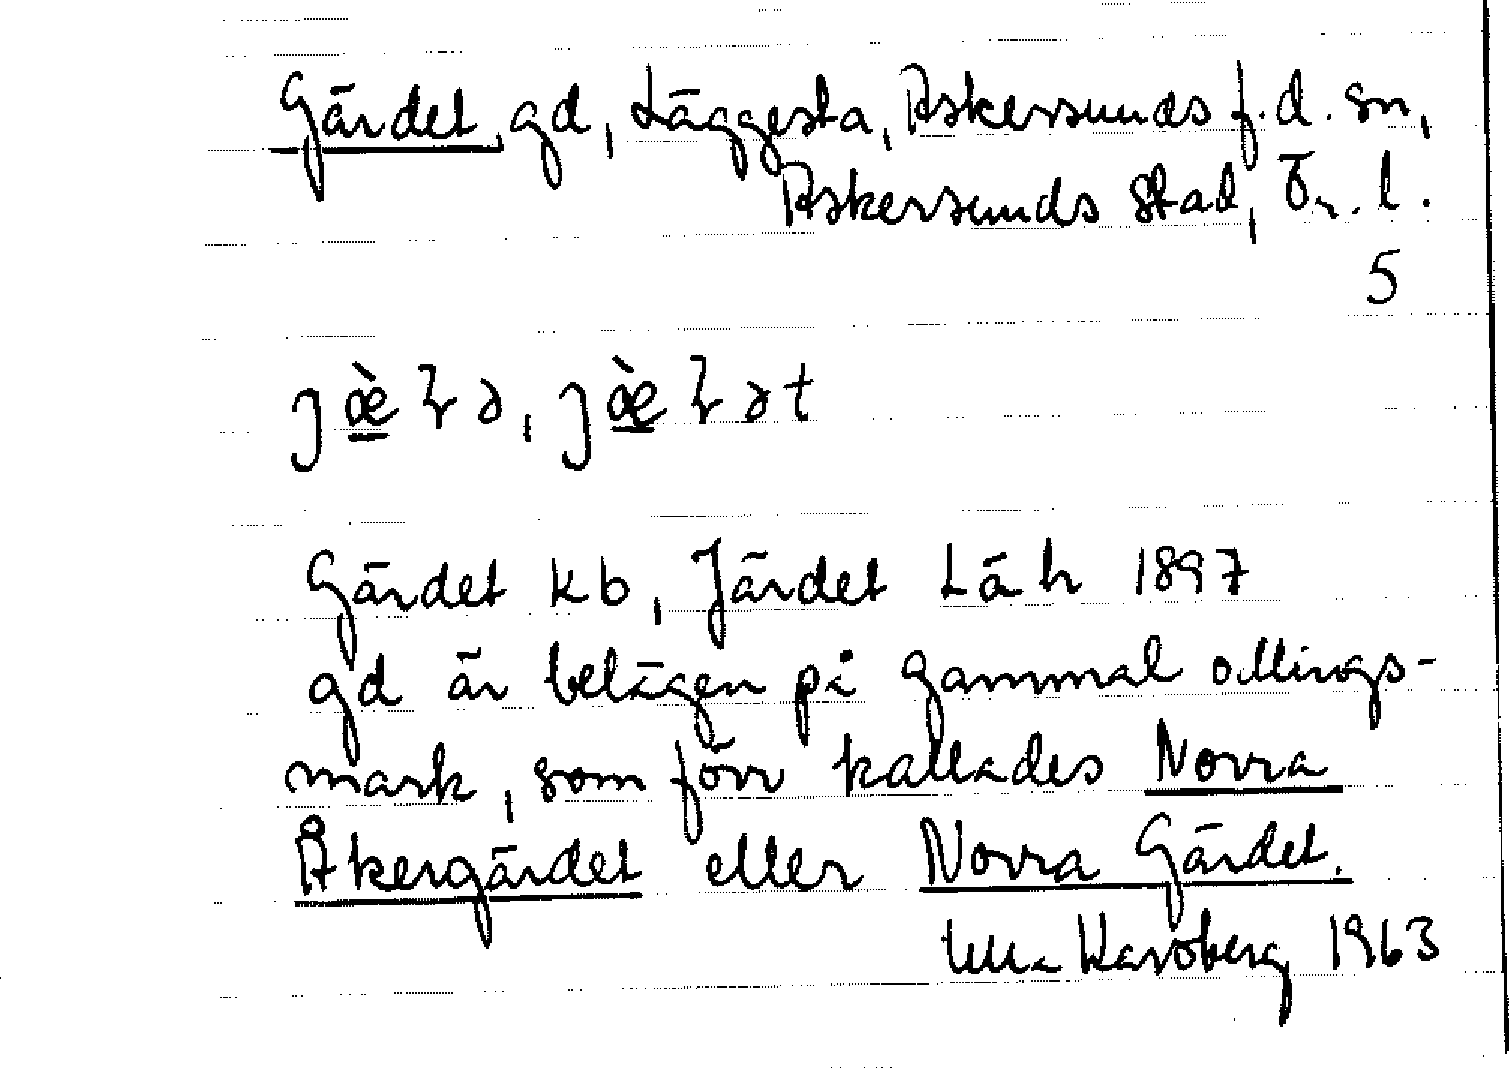 Gärdet, gd, Läggesta, Askersunds f.d. sn,
Askersunds stad, Ör. l.
5
Gärdet kb, Järdet Lä h 1897
gd är belägen på gammal odlings-
mark, som förr kallades Norra
Åkergärdet eller Norra Gärdet.
Ulla 1963